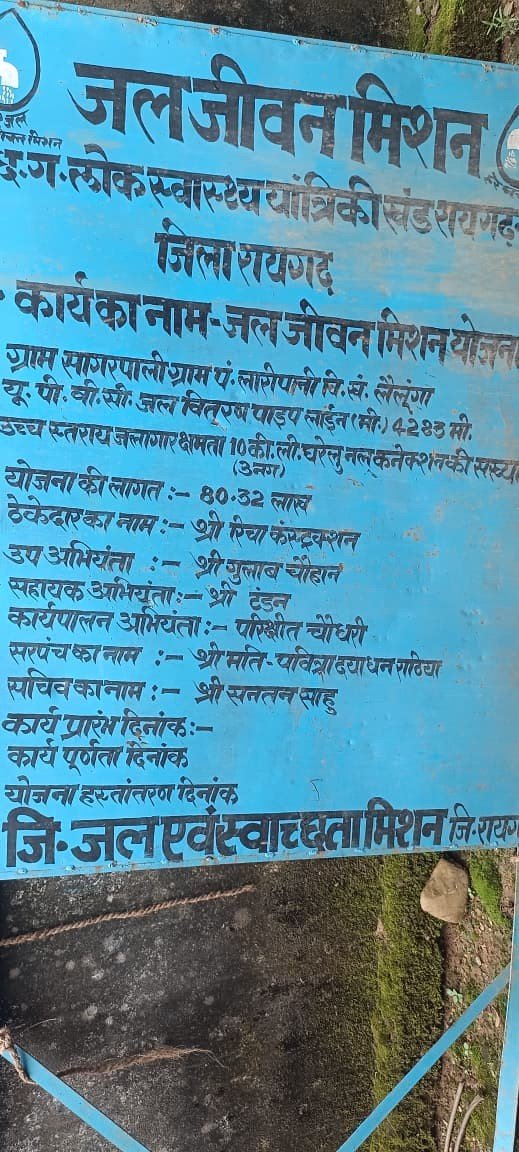 जल जीवन मिशन
छ.ग. लोक स्वास्थ्य यांत्रिकी खंड रायगढ़
जिला रायगढ़
कार्य का नाम - जल जीवन मिशन योजना
ग्राम सागरपाली ग्राम पं. लारीपानी वि.खं. लैलूंगा
यू. पी. वी. सी. जल वितरण पाइप लाईन (मी.) 4283 मी.
उच्च स्तराय जलागार क्षमता 10 की.ली. घरेलु नल कनेक्शन की संख्या
(3नग)
योजना की लागत :- 80.32 लाख
ठेकेदार का नाम :- श्री रिचा कंस्ट्रक्शन
उप अभियंता :- श्री गुलाब चौहान
सहायक अभियंता :- श्री टंडन
कार्यपालन अभियंता :- परिक्षीत चौधरी
सरपंच का नाम :- श्री मति - पवित्रा दयाधन राठिया
सचिव का नाम :- श्री सनतन साहु
कार्य प्रारंभ दिनांक :-
कार्य पूर्णता दिनांक
योजना हस्तांतरण दिनांक
जि. जल एवं स्वाच्छता मिशन जि. रायग